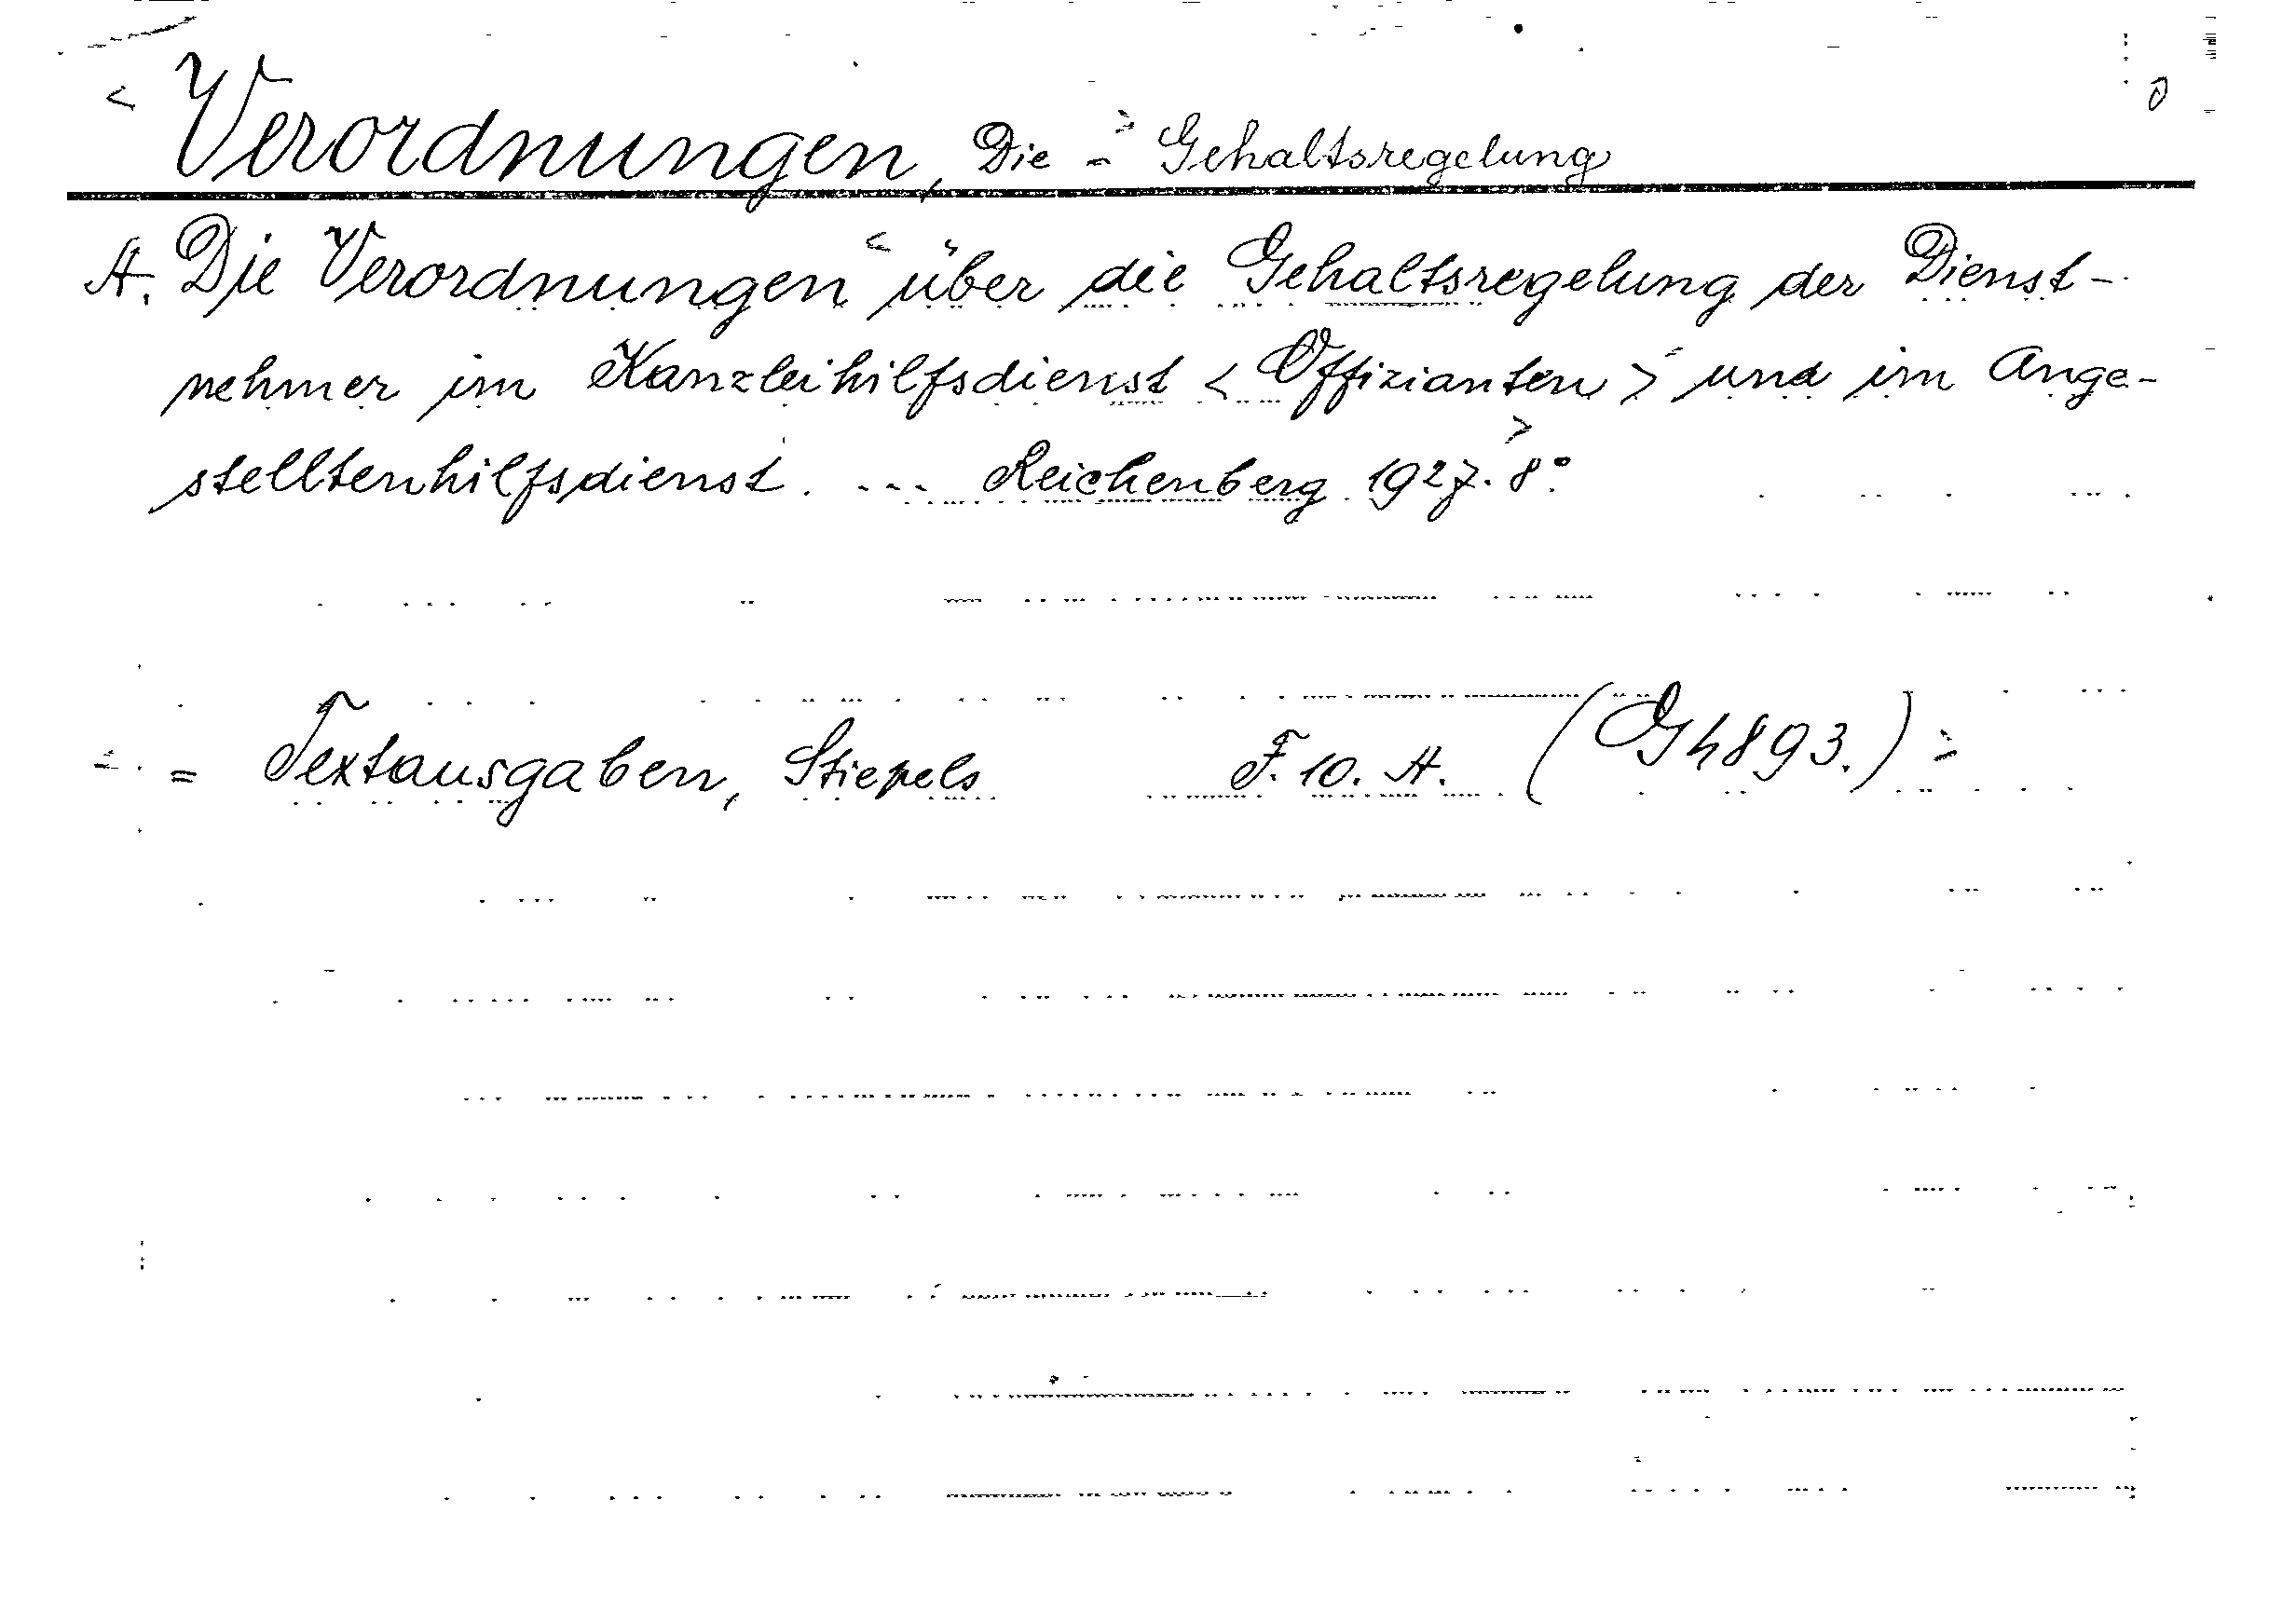 < Verordnungen, Die = > Gehaltsregelung
A. Die Verordnungen < über die Gehaltsregelung der Dienst-
nehmer im Kanzleihilfsdienst < Offizianten > und im Ange-
stelltenhilfsdienst. ... Reichenberg 1927. 8°. >
= Textausgaben, Stiepels F. 10. A. (G 4893.) =